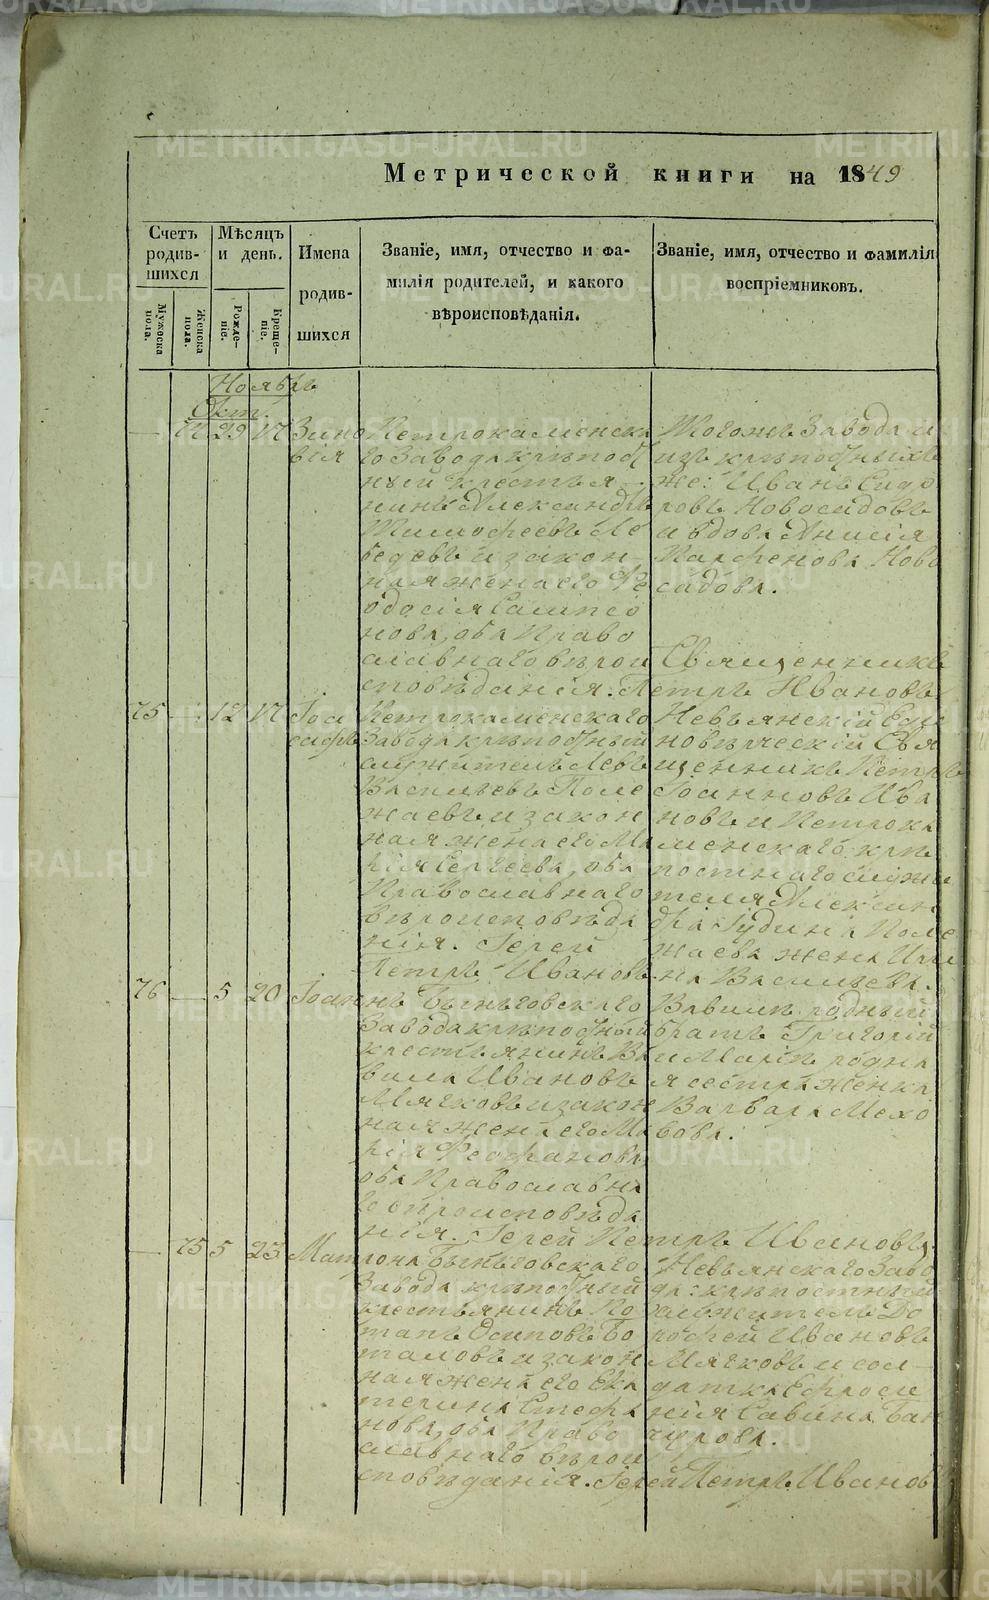 Метрической книги на 1849
Счетъ родив-шихся
Мѣсяцъ и день.
Имена родив-шихся
Званіе, имя, отчество и фа-
милія родителей, и какого
вѣроисповѣданія.
Званіе, имя, отчество и фамилія
воспріемниковъ.
Мужеска пола.
Женска пола.
Рожде-ніе.
Креще-ніе.
Ноябрь
Окт.
74 29 17 Зино
вія
Петрокаменска
го Завода крѣпост
ный крестья
нинъ Александръ
Тимофеевъ Ле
бедевъ и закон
ная жена его Ѳе
одосія Сампсо
нова, оба Право
славнаго вѣрои
сповѣданія.
Тогожъ Завода и
изъ крѣпостныхъ
же: Иванъ Сидо
ровъ Новосадовъ
и вдова Анисія
Парфенова Ново
садова.
Священникъ
Петръ Ивановъ
75 12 17 Іоа
сафъ
Петрокаменскаго
Завода крѣпостный
служитель Левъ
Васильевъ Поле
жаевъ и закон
ная жена его Ма
рія Сергеева, оба
Православнаго
вѣроисповѣда
нія. Іерей
Петръ Ивановъ
Невьянскій Еди
новѣрческій Свя
щенникъ Петръ
Іоанновъ Ива
новъ и Петрока
менскаго крѣ
постнаго служи
теля Алексан
дра Гудина Поле
жаева жена Ири
на Васильева.
76 5 20 Іоаннъ
Быньговскаго
Завода крѣпостный
крестьянинъ Ва
вила Ивановъ
Мягковъ и закон
ная жена его Ма
рія Феофанова
оба Православна
го вѣроисповѣда
нія. Іерей Петръ Ивановъ
Вавилы родный
братъ Григорій
и Маріи родна
я сестра женка
Варвара Мехо
вова.
75 5 23 Матрона
Быньговскаго
Завода крѣпостный
крестьянинъ По
тапъ Осиповъ Бо
таловъ и закон
ная жена его Ека
терина Стефа
нова, оба Право
славнаго вѣрои
сповѣданія. Іерей Петръ Ивановъ
Невьянскаго Заво
да: крѣпостный
служитель До
рофей Ивановъ
Мягковъ и сол
датка Ефроси
нія Савина Бан
чурова.
METRIKI.GASO-URAL.RU